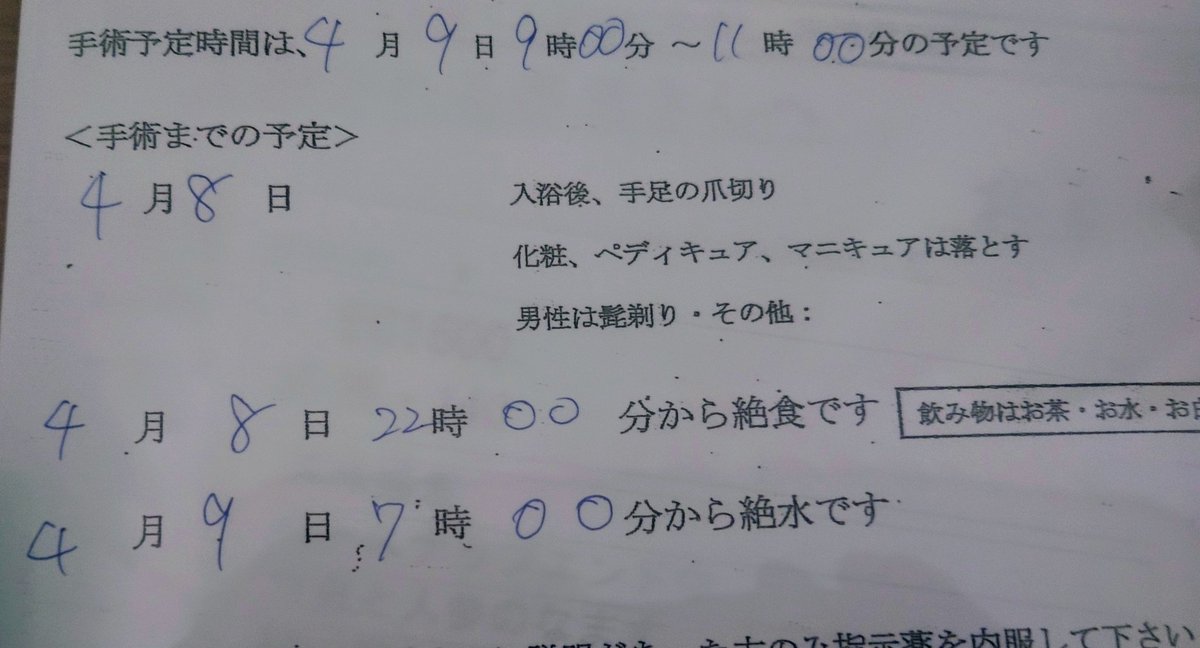 手術予定時間は、4月9日9時00分～11時00分の予定です
＜手術までの予定＞
4月8日 入浴後、手足の爪切り
化粧、ペディキュア、マニキュアは落とす
男性は髭剃り・その他：
4月8日22時00分から絶食です 飲み物はお茶・お水・お
4月9日7時00分から絶水です
方のみ指示薬を内服して下さい